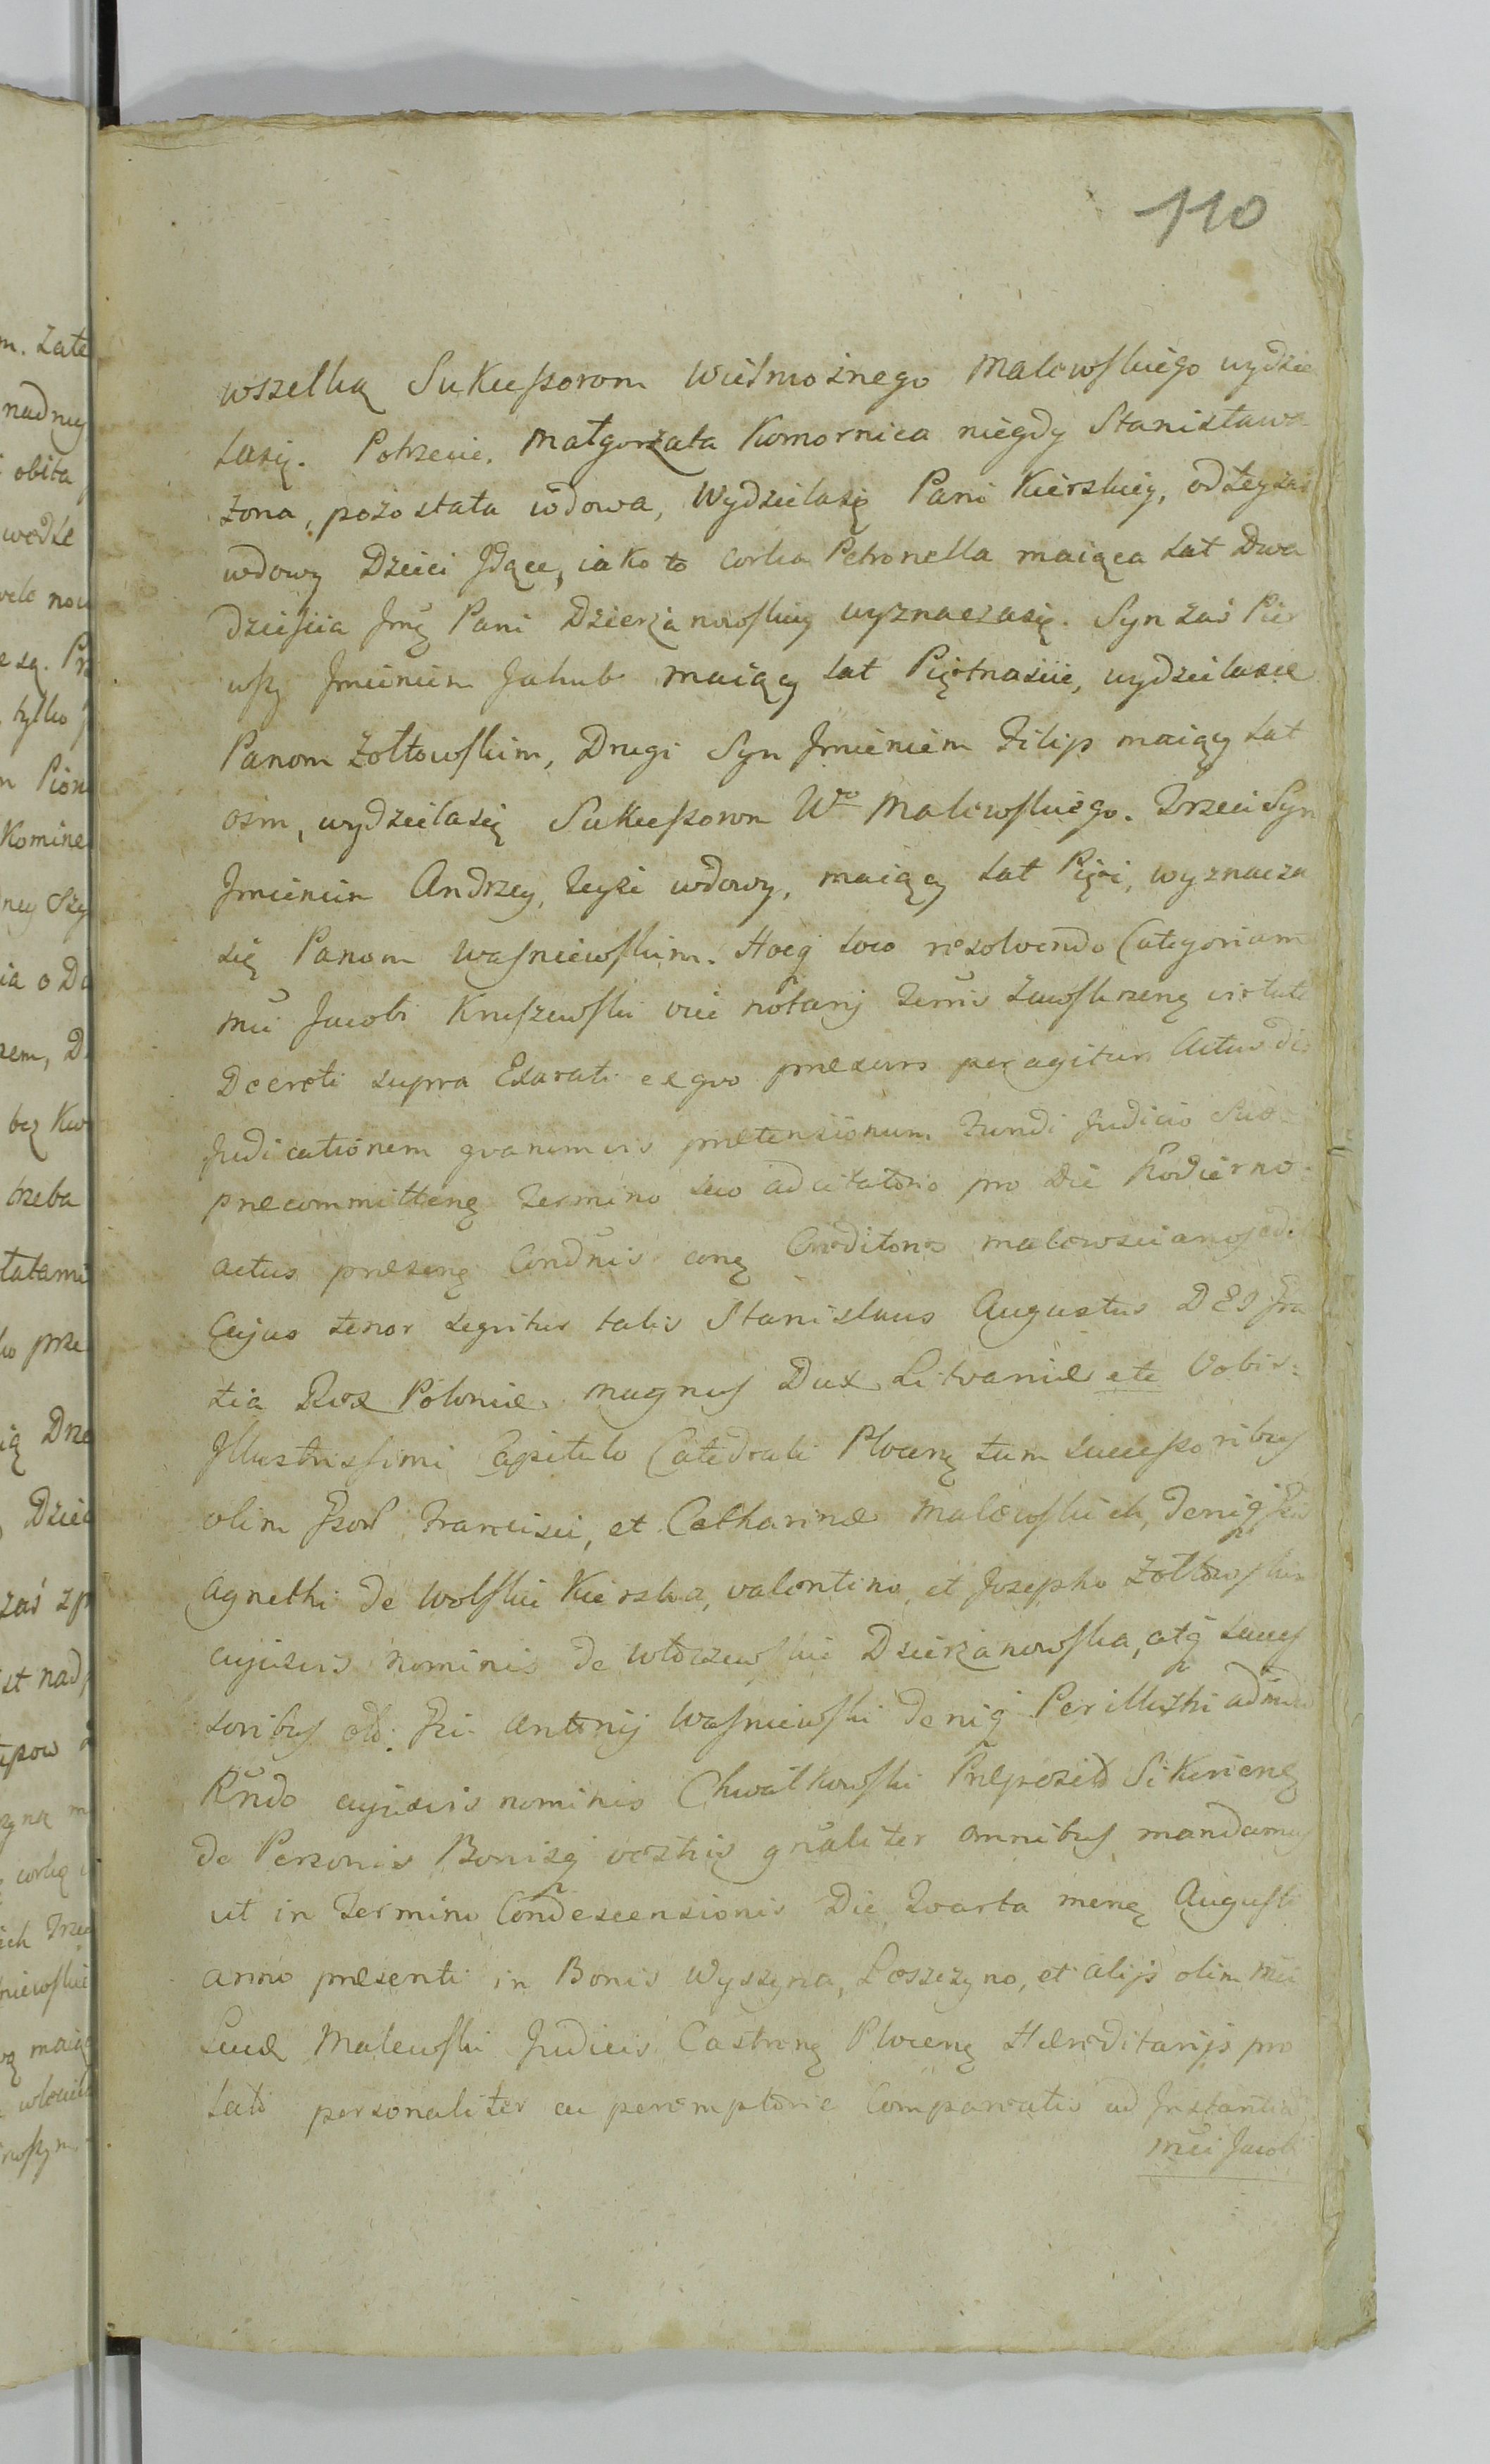 110
wszelką Sukceßorom Wielmożnego Malewskiego wydzie
lasię. Potrzecie. Małgorzata Komornica niegdy Stanisława
żona, pozostała wdowa, Wydzielasię Pani Kierskiey, odteyzaś
wdowy Dzieci Jdące, iako to Corka Petronella maiąca lat Dwa
dzieścia Jmę Pani Dzierżanowskiey wyznaczasię. Syn zaś Pier
wszy Jmieniem Jakub maiący lat Piętnaście, wydzielasie
Panom Zołtowskim, Drugi Syn Jmieniem Filip maiący lat
osm, wydzielasię Sukceßorom Wo Malewskiego. Trzeci Syn
Jmieniem Andrzey, teyże wdowy, maiący lat Pięć, wyznacza
się Panom Waśniewskim. Hocq loco resolvendo Categoriam
Mci Jacobi Kruszewski vice notarij Terris Zawskrzenę virtute
Decreti supra Exarati ex quo præsens peragitur Actus di
Judicationem quarumvis prætensionum Fundi Judicio Suo
præcommittenę Termino suo adcitatorio pro Die Hodierno
actus præsenę Condnis conę Creditores Malewscianos
Cujus tenor legitur talis Stanislaus Augustus DEI Gra
tia Rex Poloniæ, Magnus Dux Litvaniæ etc Vobis
Illustrissimi Capitulo Catedrali Plocenę tum Succeßoribus
olim Francisci, et Catharinæ Malewskich, Deniq
Agnethi de Wolskie Kierska, Valentino, et Josepho Zołtowskim
cujusvis nominis de Włoczewskie Dzierżanowska, atq Succes
soribus Antonij Waśniewski Deniq Perillustri admdu
Rndo cujusvis nominis Chwalkowski Præposito Sikorienę
de Personis Bonisq vestris gnaliter omnibus mandamus
ut in Termino Condescensionis Die Quarta menę Augusti
anno præsenti in Bonis Wyszyna, Loszczyno, et alijs olim Mci
Lucæ Malewski Judicis Castrenę Plocenę Hæreditarijs pro
lato personaliter ac peremptorie Compareatis ad Instantia
Mci Jacobi